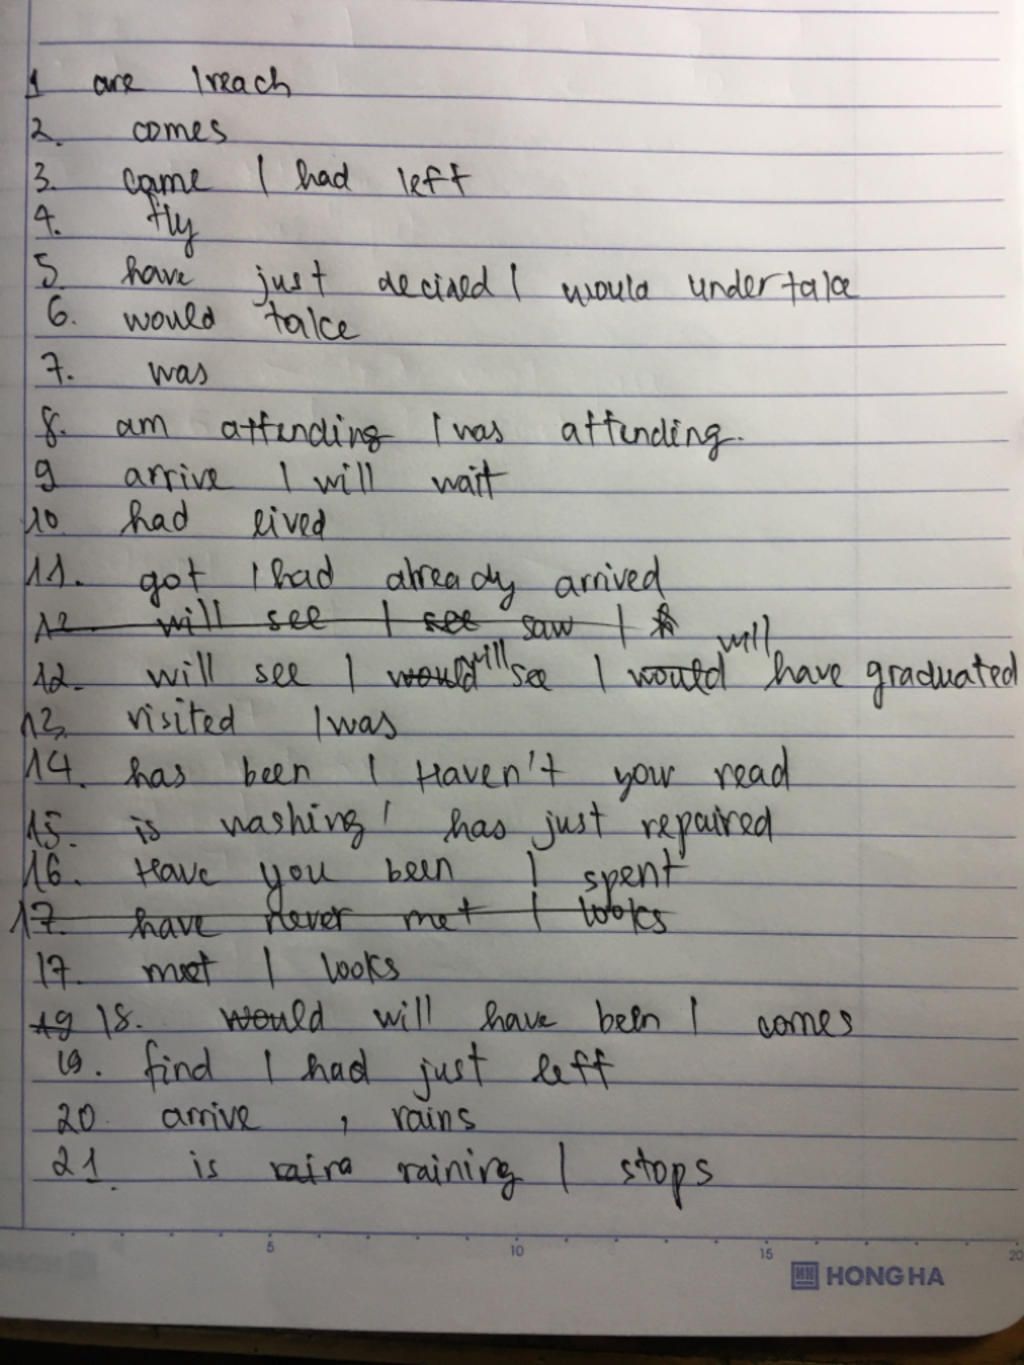 1 are / reach
2. comes
3. came / had left
4. fly
5. have just decided / would undertake
6. would take
7. was
8. am attending / was attending.
9 arrive / will wait
10 had lived
11. got / had already arrived
12. will see / see saw /
will
12. will see / would will see / would have graduated
13. visited / was
14. has been / Haven't you read
15. is washing / has just repaired
16. Have you been / spent
17. have never met / looks
17. meet / looks
19 18. would will have been / comes
19. find / had just left
20. arrive , rains
21. is raining / stops
5 10 15 20
HONG HA